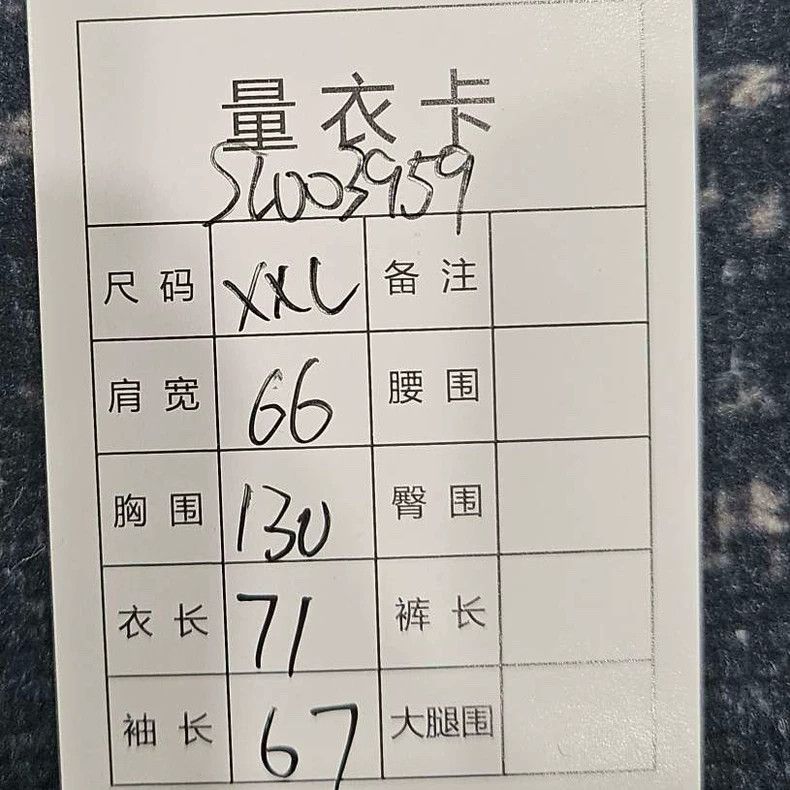 量衣卡
SL003959
尺码 XXL 备注
肩宽 66 腰围
胸围 130 臀围
衣长 71 裤长
袖长 67 大腿围